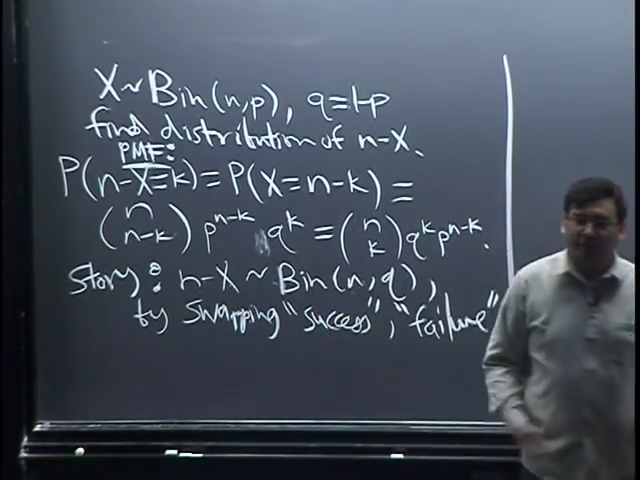 X ~ Bin(n,p), q=1-p
find distribution of n-X.
PMF:
P(n-X=k) = P(X=n-k) =
(n n-k) p^{n-k} q^k = (n k) q^k p^{n-k}.
Story: n-X ~ Bin(n,q),
by swapping "success", "failure"